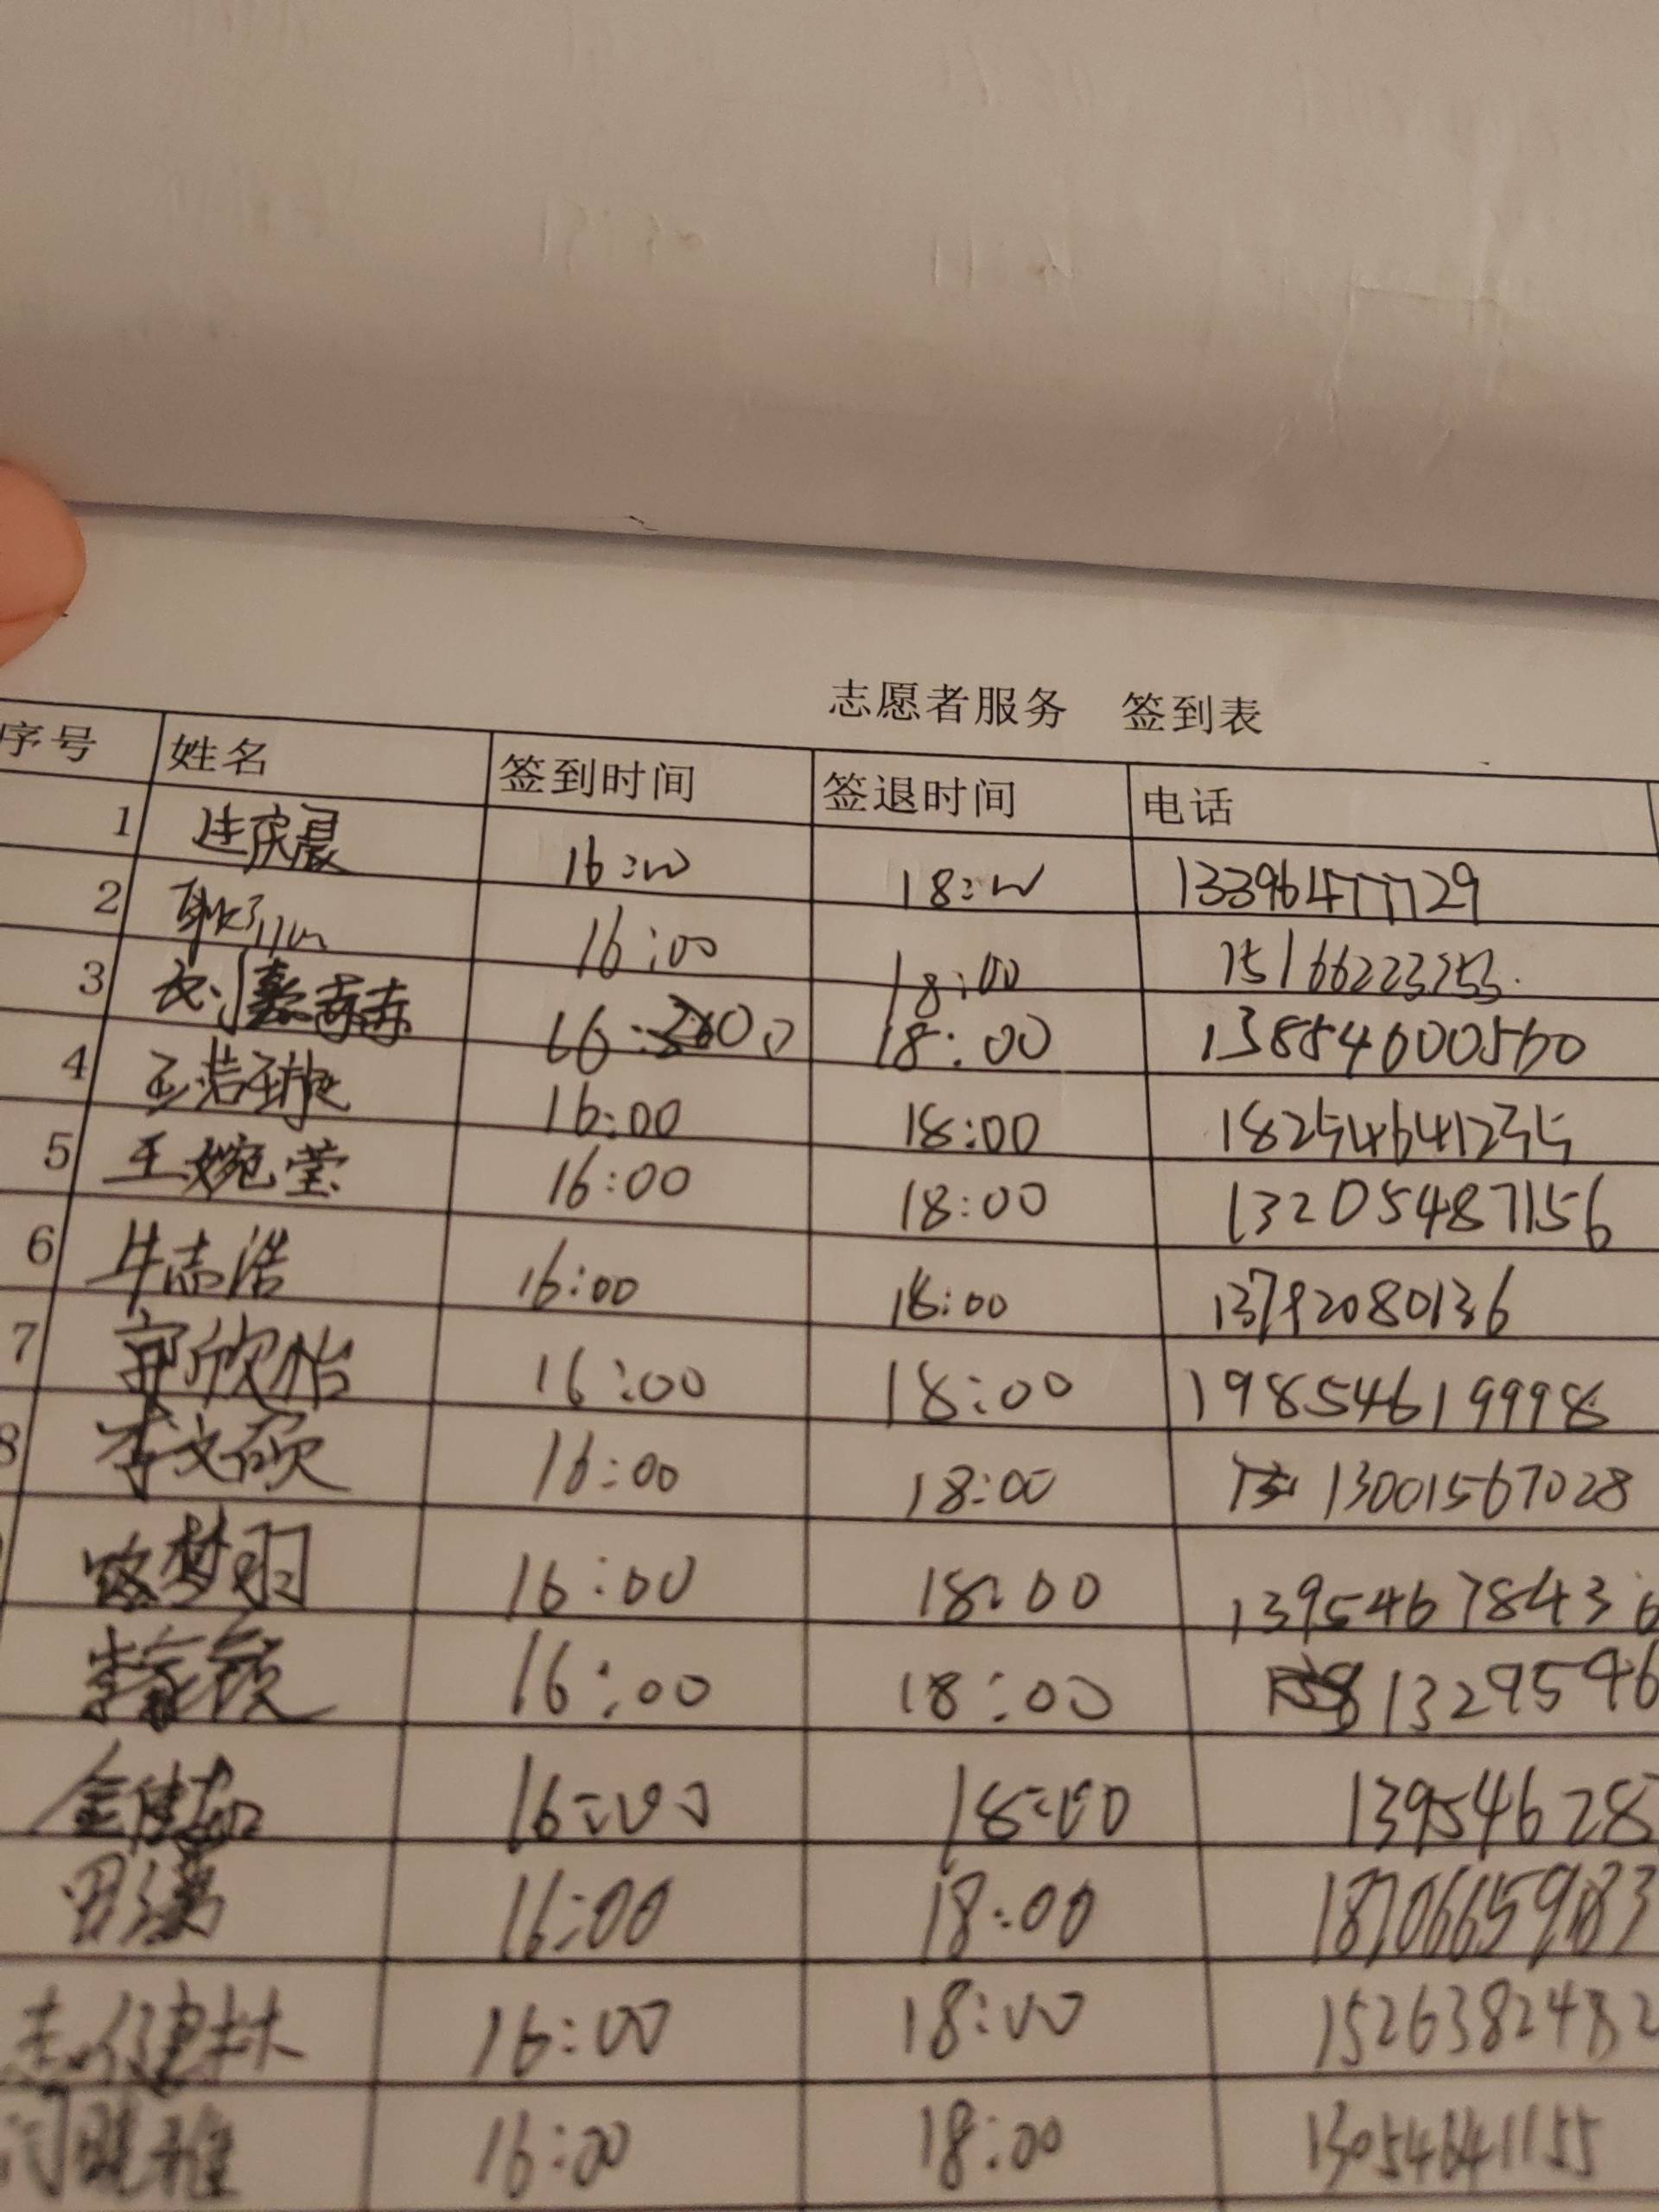 志愿者服务 签到表
序号 姓名 签到时间 签退时间 电话
1 16:00 18:00 13396477729
2 16:00 18:00 15166223253
3 16:00 18:00 13854600560
4 16:00 18:00 18254641255
5 王婉莹 16:00 18:00 13205487156
6 牛志浩 16:00 18:00 13792080136
7 郭欣怡 16:00 18:00 19854619998
8 李文硕 16:00 18:00 13001567028
路梦羽 16:00 18:00 13954678436
16:00 18:00 13295946
16:00 18:00 13954628
16:00 18:00
16:00 18:00 1526382482
16:00 18:00 13054641155